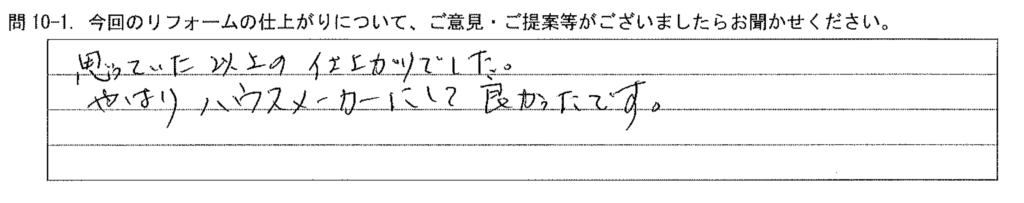 問 10-1. 今回のリフォームの仕上がりについて、ご意見・ご提案等がございましたらお聞かせください。
思っていた以上の仕上がりでした。
やはりハウスメーカーにして良かったです。